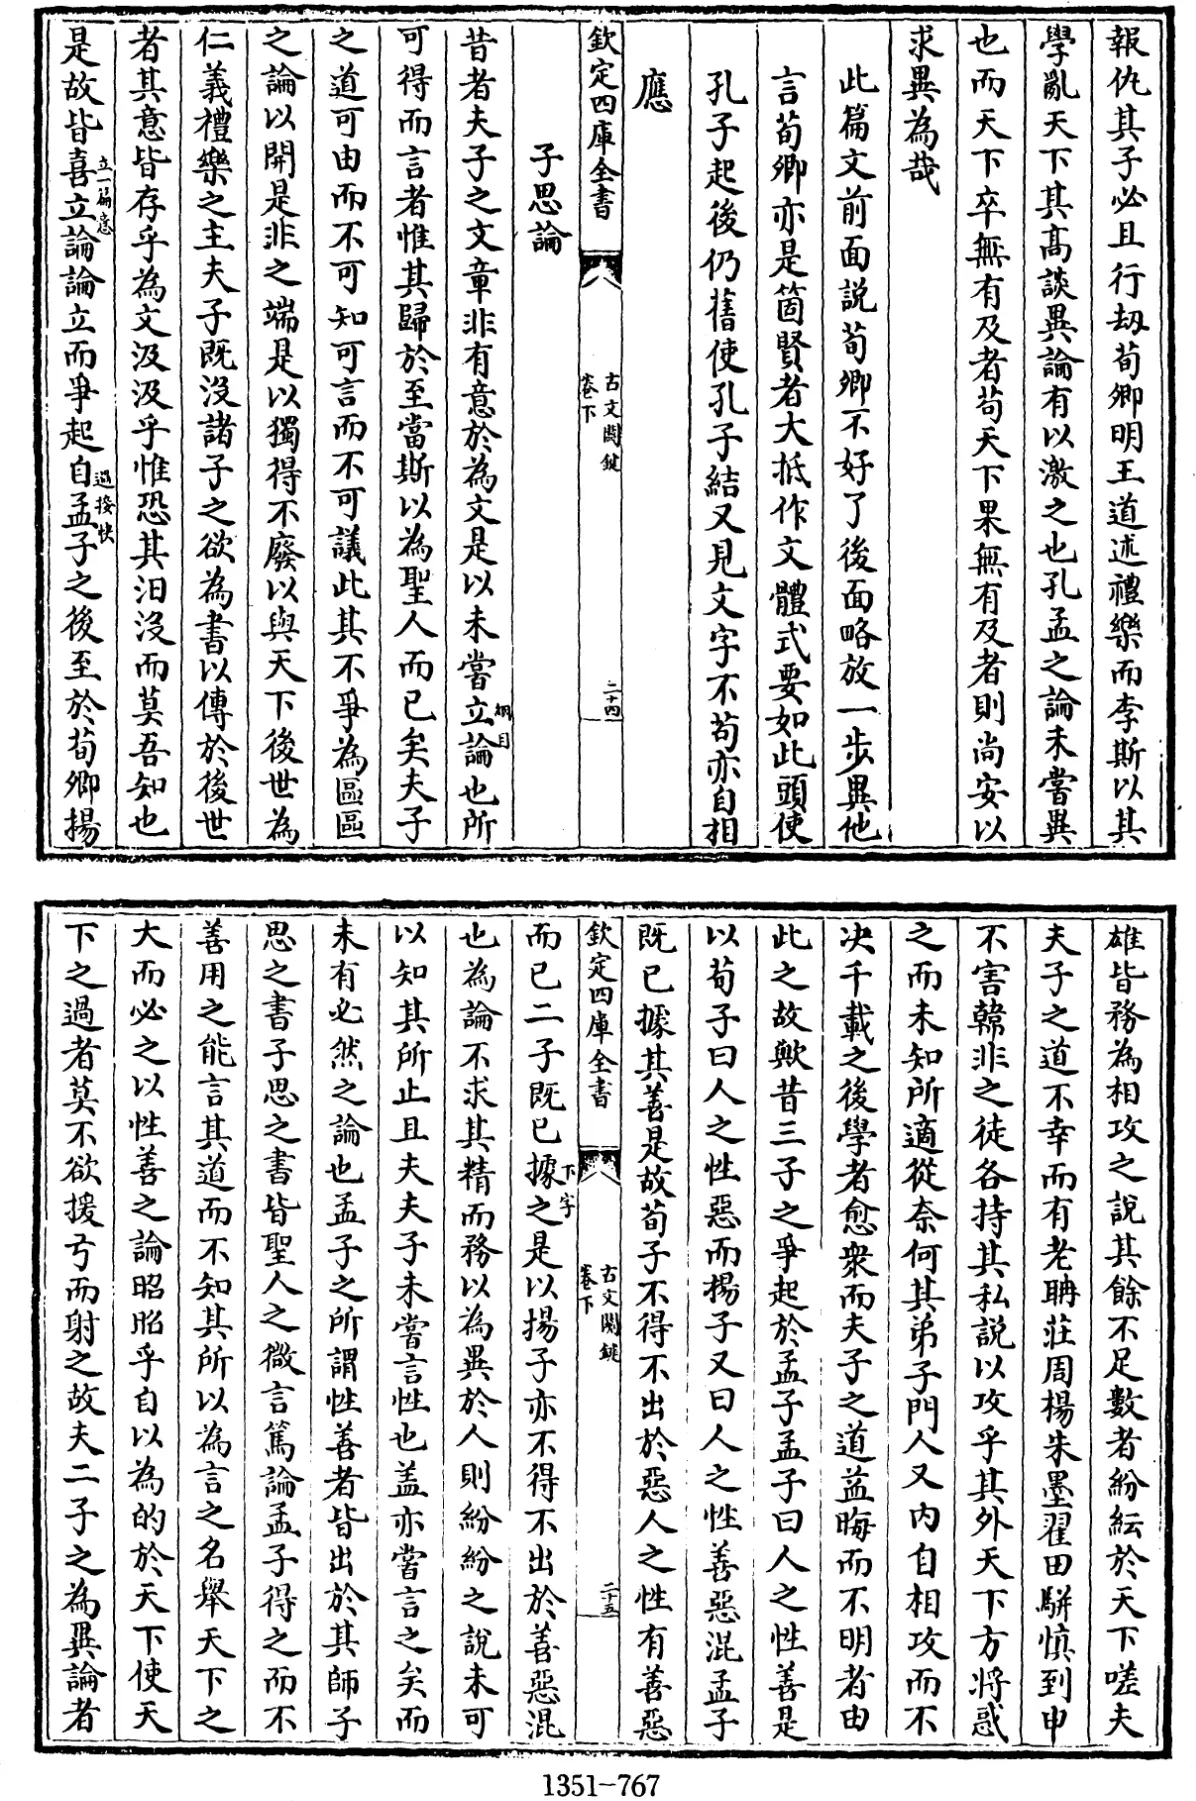 報仇其子必且行劫荀卿明王道述禮樂而李斯以其
學亂天下其髙談異論有以激之也孔孟之論未嘗異
也而天下卒無有及者茍天下果無有及者則尚安以
求異為哉
此篇文前面說荀卿不好了後面略放一步異他
言荀卿亦是箇賢者大抵作文體式要如此頭使
孔子起後仍舊使孔子結又見文字不茍亦自相
應
欽定四庫全書
古文關鍵
卷下
二十四
子思論
昔者夫子之文章非有意於為文是以未嘗立論也所
綱目
可得而言者惟其歸於至當斯以為聖人而已矣夫子
之道可由而不可知可言而不可議此其不爭為區區
之論以開是非之端是以獨得不廢以與天下後世為
仁義禮樂之主夫子既沒諸子之欲為書以傳於後世
者其意皆存乎為文汲汲乎惟恐其汨沒而莫吾知也
是故皆喜立論論立而爭起自孟子之後至於荀卿揚
立一篇意
過接快
雄皆務為相攻之說其餘不足數者紛紜於天下嗟夫
夫子之道不幸而有老聃莊周楊朱墨翟田駢慎到申
不害韓非之徒各持其私說以攻乎其外天下方將惑
之而未知所適從奈何其弟子門人又内自相攻而不
决千載之後學者愈衆而夫子之道益晦而不明者由
此之故歟昔三子之爭起於孟子孟子曰人之性善是
以荀子曰人之性惡而揚子又曰人之性善惡混孟子
既已據其善是故荀子不得不出於惡人之性有善惡
欽定四庫全書
古文關鍵
卷下
二十五
而已二子既已據之是以揚子亦不得不出於善惡混
下字
也為論不求其精而務以為異於人則紛紛之說未可
以知其所止且夫夫子未嘗言性也盖亦嘗言之矣而
未有必然之論也孟子之所謂性善者皆出於其師子
思之書子思之書皆聖人之微言篤論孟子得之而不
善用之能言其道而不知其所以為言之名舉天下之
大而必之以性善之論昭昭乎自以為的於天下使天
下之過者莫不欲援弓而射之故夫二子之為異論者
1351-767